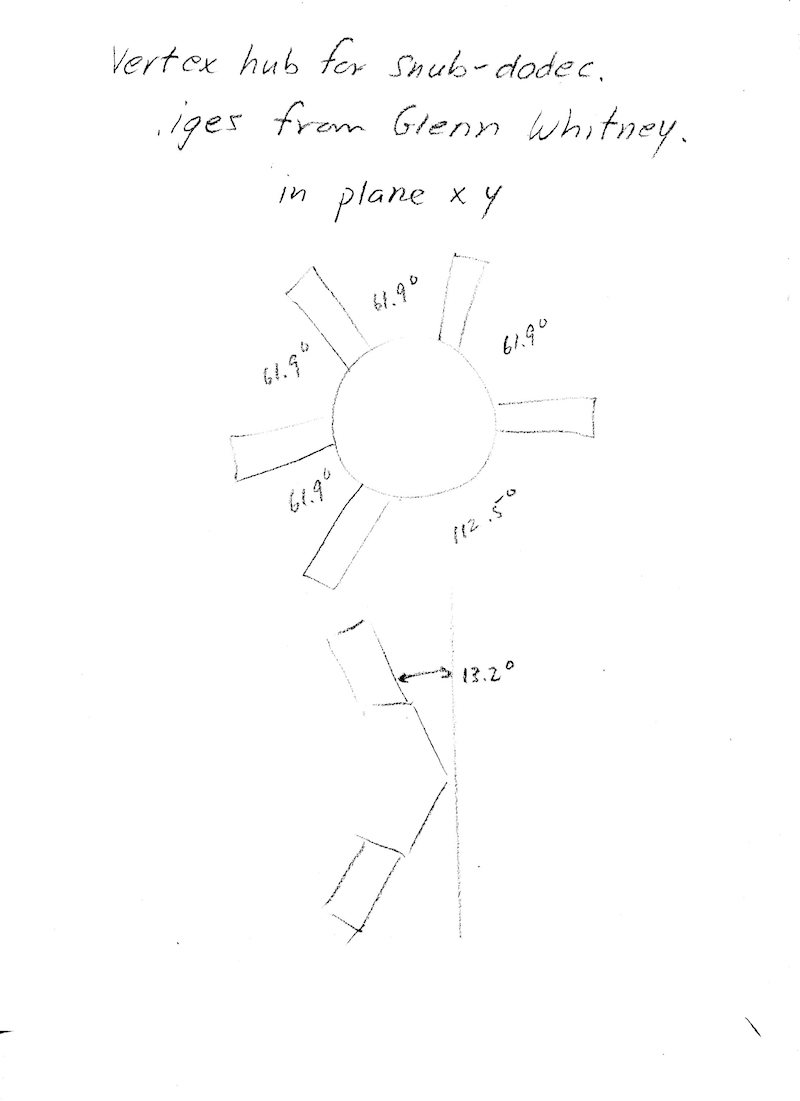 Vertex hub for snub-dodec.
.iges from Glenn Whitney.
in plane x y
61.9°
61.9°
61.9°
61.9°
112.5°
13.2°